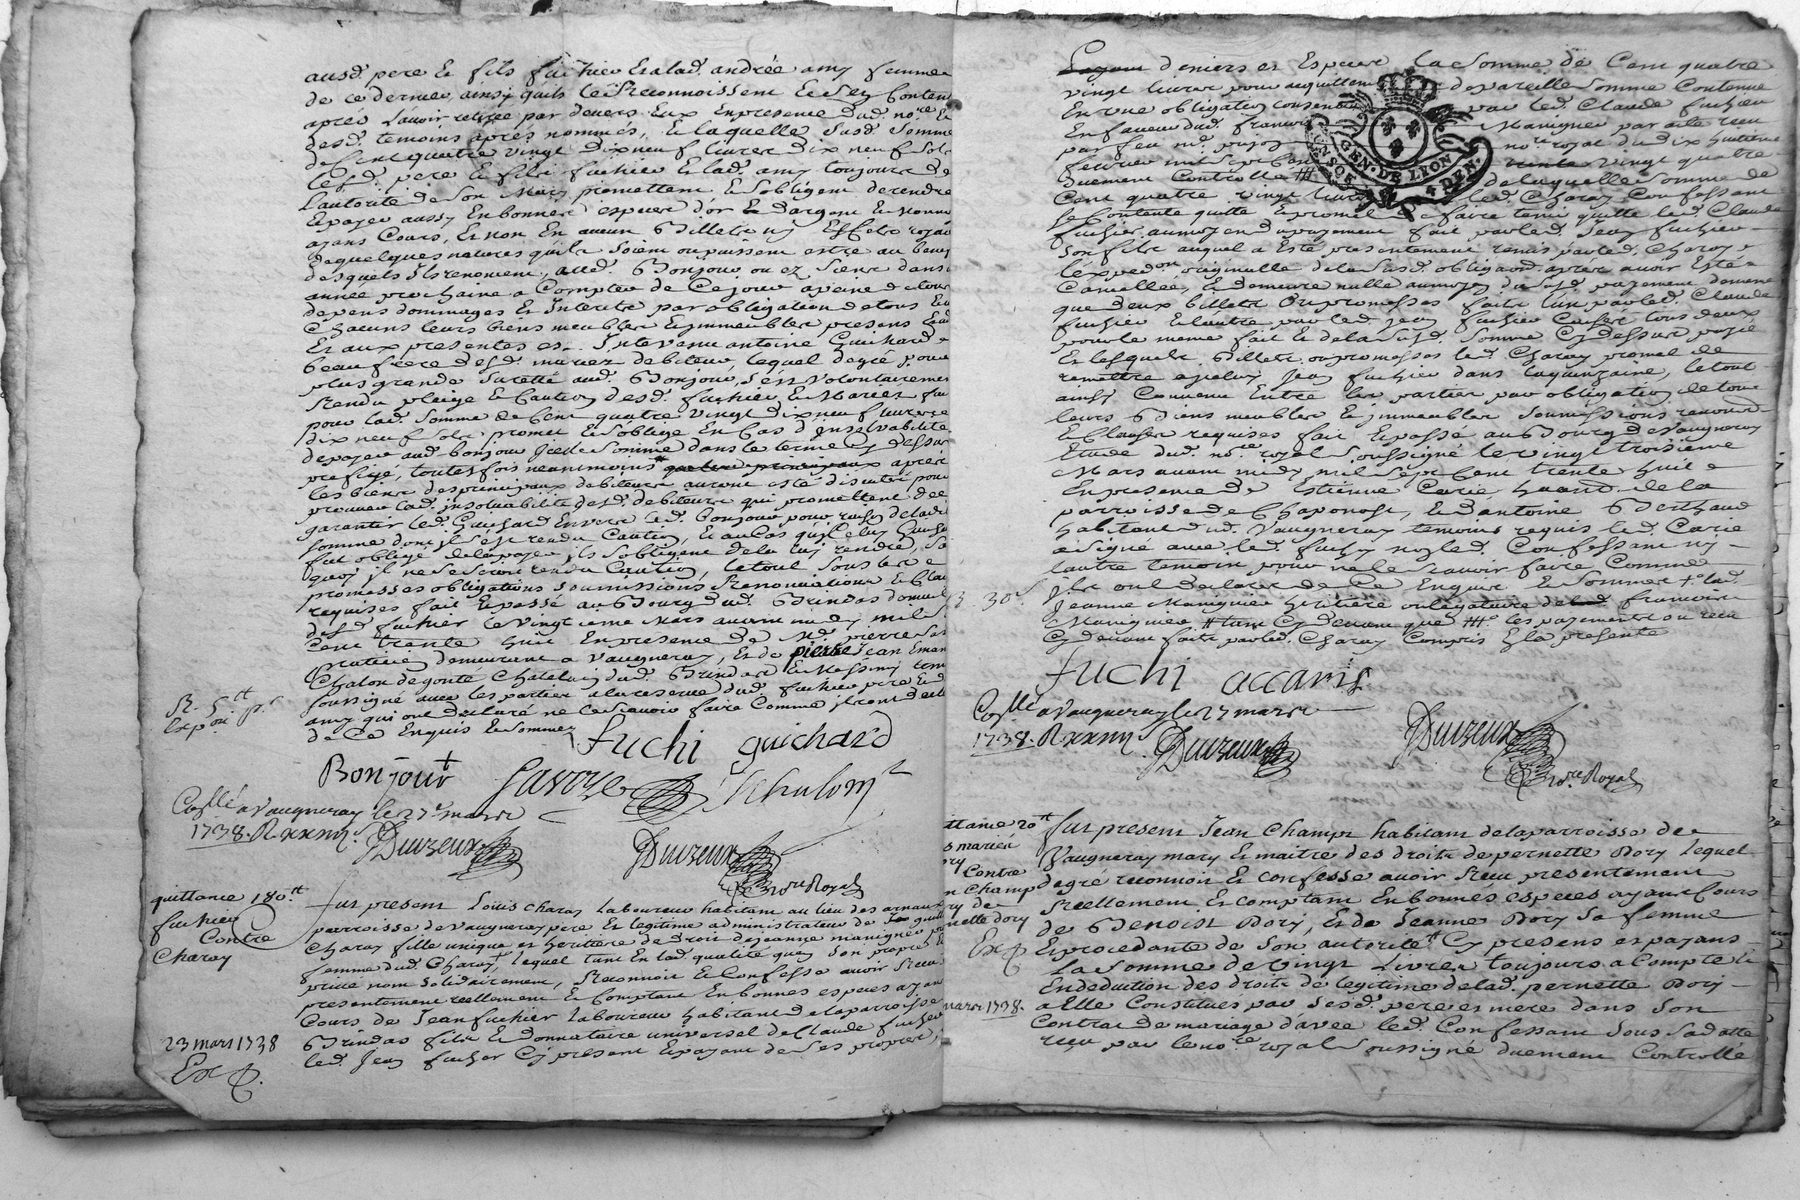 ausd. pere & fils fuchier & alad. andrée amy femme
de ce dernier, ainsy quils le Reconnoissent & sen Conten
apres Lavoir retirée par devers Eux En presence dud. nore. &
desd. temoins apres nommés, & laquelle susd. somme
de Cent quatre vingt dix neuf livres dix neuf sols
lesd. pere & fils fuchier & lad. amy toujours de
L'autorité de son Mary promettent & s'obligent de rendre
& payer aussy En bonnes especes d'or & d'argent & Monn
ayans Cours, & non En aucun Billets ny Effets royau
de quelques natures qu'ils soient ou puissent estre au benef
desquels Ils renoncent, aud. Bonjour ou ez siens dans
année prochaine a Compter de Ce jour a peine de tous
depens dommages & Interets par obligation de tous &
Chacuns leurs biens meubles & immeubles presens
Et aux presentes est Intervenu antoine Guichard
beau frere desd. mariez debiteurs, lequel de gré, pour
plus grande suretté aud. Bonjour, s'est volontairemen
Rendu pleige & Caution desd. fuchier & Mariez fu
pour lad. somme de Cent quatre vingt dix neuf livres
dix neuf sols promet & s'oblige En Cas d'insolvabilité
de payer aud. bonjour Icelle somme dans le terme Cy dessus
prefigé, toutes fois neantmoins apres
les biens des principaux debiteurs auront esté discutés pour
prouver lad. insolvabilité desd. debiteurs qui promettent de
garantir led. Guichard Envers led. bonjour pour raison de lad.
somme dont il s'est rendu Caution, & au Cas qu'Iceluy Guicha
fut obligé de la payer, ils s'obligent de la luy rendre, sa
quoy il ne se seroit rendu Caution, le tout sous les
promesses obligations soumissions Renonciations & Clau
requises fait & passé au Bourg dud. Brindas domicile
desd. fuchier le vingtieme Mars avant midy mil S
Cent trente huit En presence de Me. pierre
praticien demeurant a Vaugneray, & de pierre Jean Eman
Chalon degoute Chatelain dud. Brindas & Messimy tem
soussigné avec les parties a la reserve dud. fuchier pere & d
amy qui ont declaré ne le scavoir faire Comme ils ont de
de Ce Enquis & sommez
R. 5tt
Expon.
fuchi guichard
Bonjour Savoye Jchalon
Collé a Vaugneray le 27e mars
1738. R xxiiij s. JDuvzeux
JDuvzeux nore Royal
quittance 180tt
fuchier
Contre
Charay
23 mars 1738
Ex
fut present Louis Charay laboureur habitant au lieu des arnaux
parroisse de Vaugneray pere & legitime administrateur de
Charay fille unique et heritiere de droit de jeanne manignier
femme dud. Charay, lequel tant En lad. qualité qu'en son propre &
privé nom solidairement, Reconnoit & Confesse avoir Receu
presentement reellement & Comptant En bonnes especes ayan
Cours de Jean fuchier laboureur habitant de la parroisse
Brindas fils & donnataire universel de Claude fuchier
led. Jean fuchier Cy present & payant de ses propres
deniers et Especes la somme de Cent quatre
vingt livres pour acquittement de pareille somme Contenue
En une obligation Consentie par led. Claude fuchier
En faveur dud. françois Manignier par acte receu
par feu me. nore. royal du dix huitieme
fevrier mil sept Cent trente vingt quatre
Duement Controllé de laquelle somme de
Cent quatre vingt livres led. Charay Confessant
se Contente quitte & promet faire tenir quitte led. Claude
fuchier au moyen du payement fait par led. Jean fuchier
son fils auquel a Esté presentement remis par led. Charay
l'expedon. originelle de la susd. obligaon. apres avoir Esté
Cancellée, & demeure nulle au moyen du susd. payement
que deux billets ou promesses faits l'un par led. Claude
fuchier & l'autre par led. jean fuchier tous deux
pour le meme fait & de la susd. somme Cy dessus payée
& lesquels billets ou promesses led. Charay promet de
remettre a iceluy Jean fuchier dans la quinzaine, le tout
ainsy Convenu Entre les parties par obligation de tous
leurs Biens meubles & immeubles soumissions renond.
& Clauses requises fait & passé au Bourg de Vaugneray
Etude dud. nore. royal soussigné le vingt troisieme
Mars avant midy mil sept Cent trente huit
En presence de Estienne Carie, de la
parroisse de Chaponost, & d'antoine Berthaud
habitant dud. Vaugneray temoins requis led. Carie
a signé avec led. fuchy non led. Confessant ny
l'autre temoin pour ne le scavoir faire Comme
ils ont declaré de Ce Enquis & sommés lad.
Jeanne Manignier heritiere ou legataire de françois
Manignier tant Cy devant que les payements ou receu
Cy devant faits par led. Charay Compris En la presente
30s
fuchi accarié
Collé a Vaugneray le 27 mars
1738. R xxiiij s. JDuvzeux
JDuvzeux
nore Royal
GEN. DE LION
4 DEN.
ttance 20tt
s mariés
ory
Contre
n Champ
y de
nette dory
Ex
mars 1738.
fut present Jean Champ habitant de la parroisse de
Vaugneray mary & maitre des droits de pernette Dory lequel
de gré reconnoit & confesse avoir Receu presentement
Reellement & comptant En bonnes especes ayant Cours
de Benoist Dory, & de Jeanne Dory sa femme
& procedante de son autorité Cy presens et payans
La somme de vingt livres toujours a Compte &
En deduction des droits de legitime de lad. pernette Dory
a Elle Constitués par sesd. pere et mere dans son
Contrat de mariage d'avec led. Confessant sous sa datte
receu par le nore. royal soussigné duement Controllé